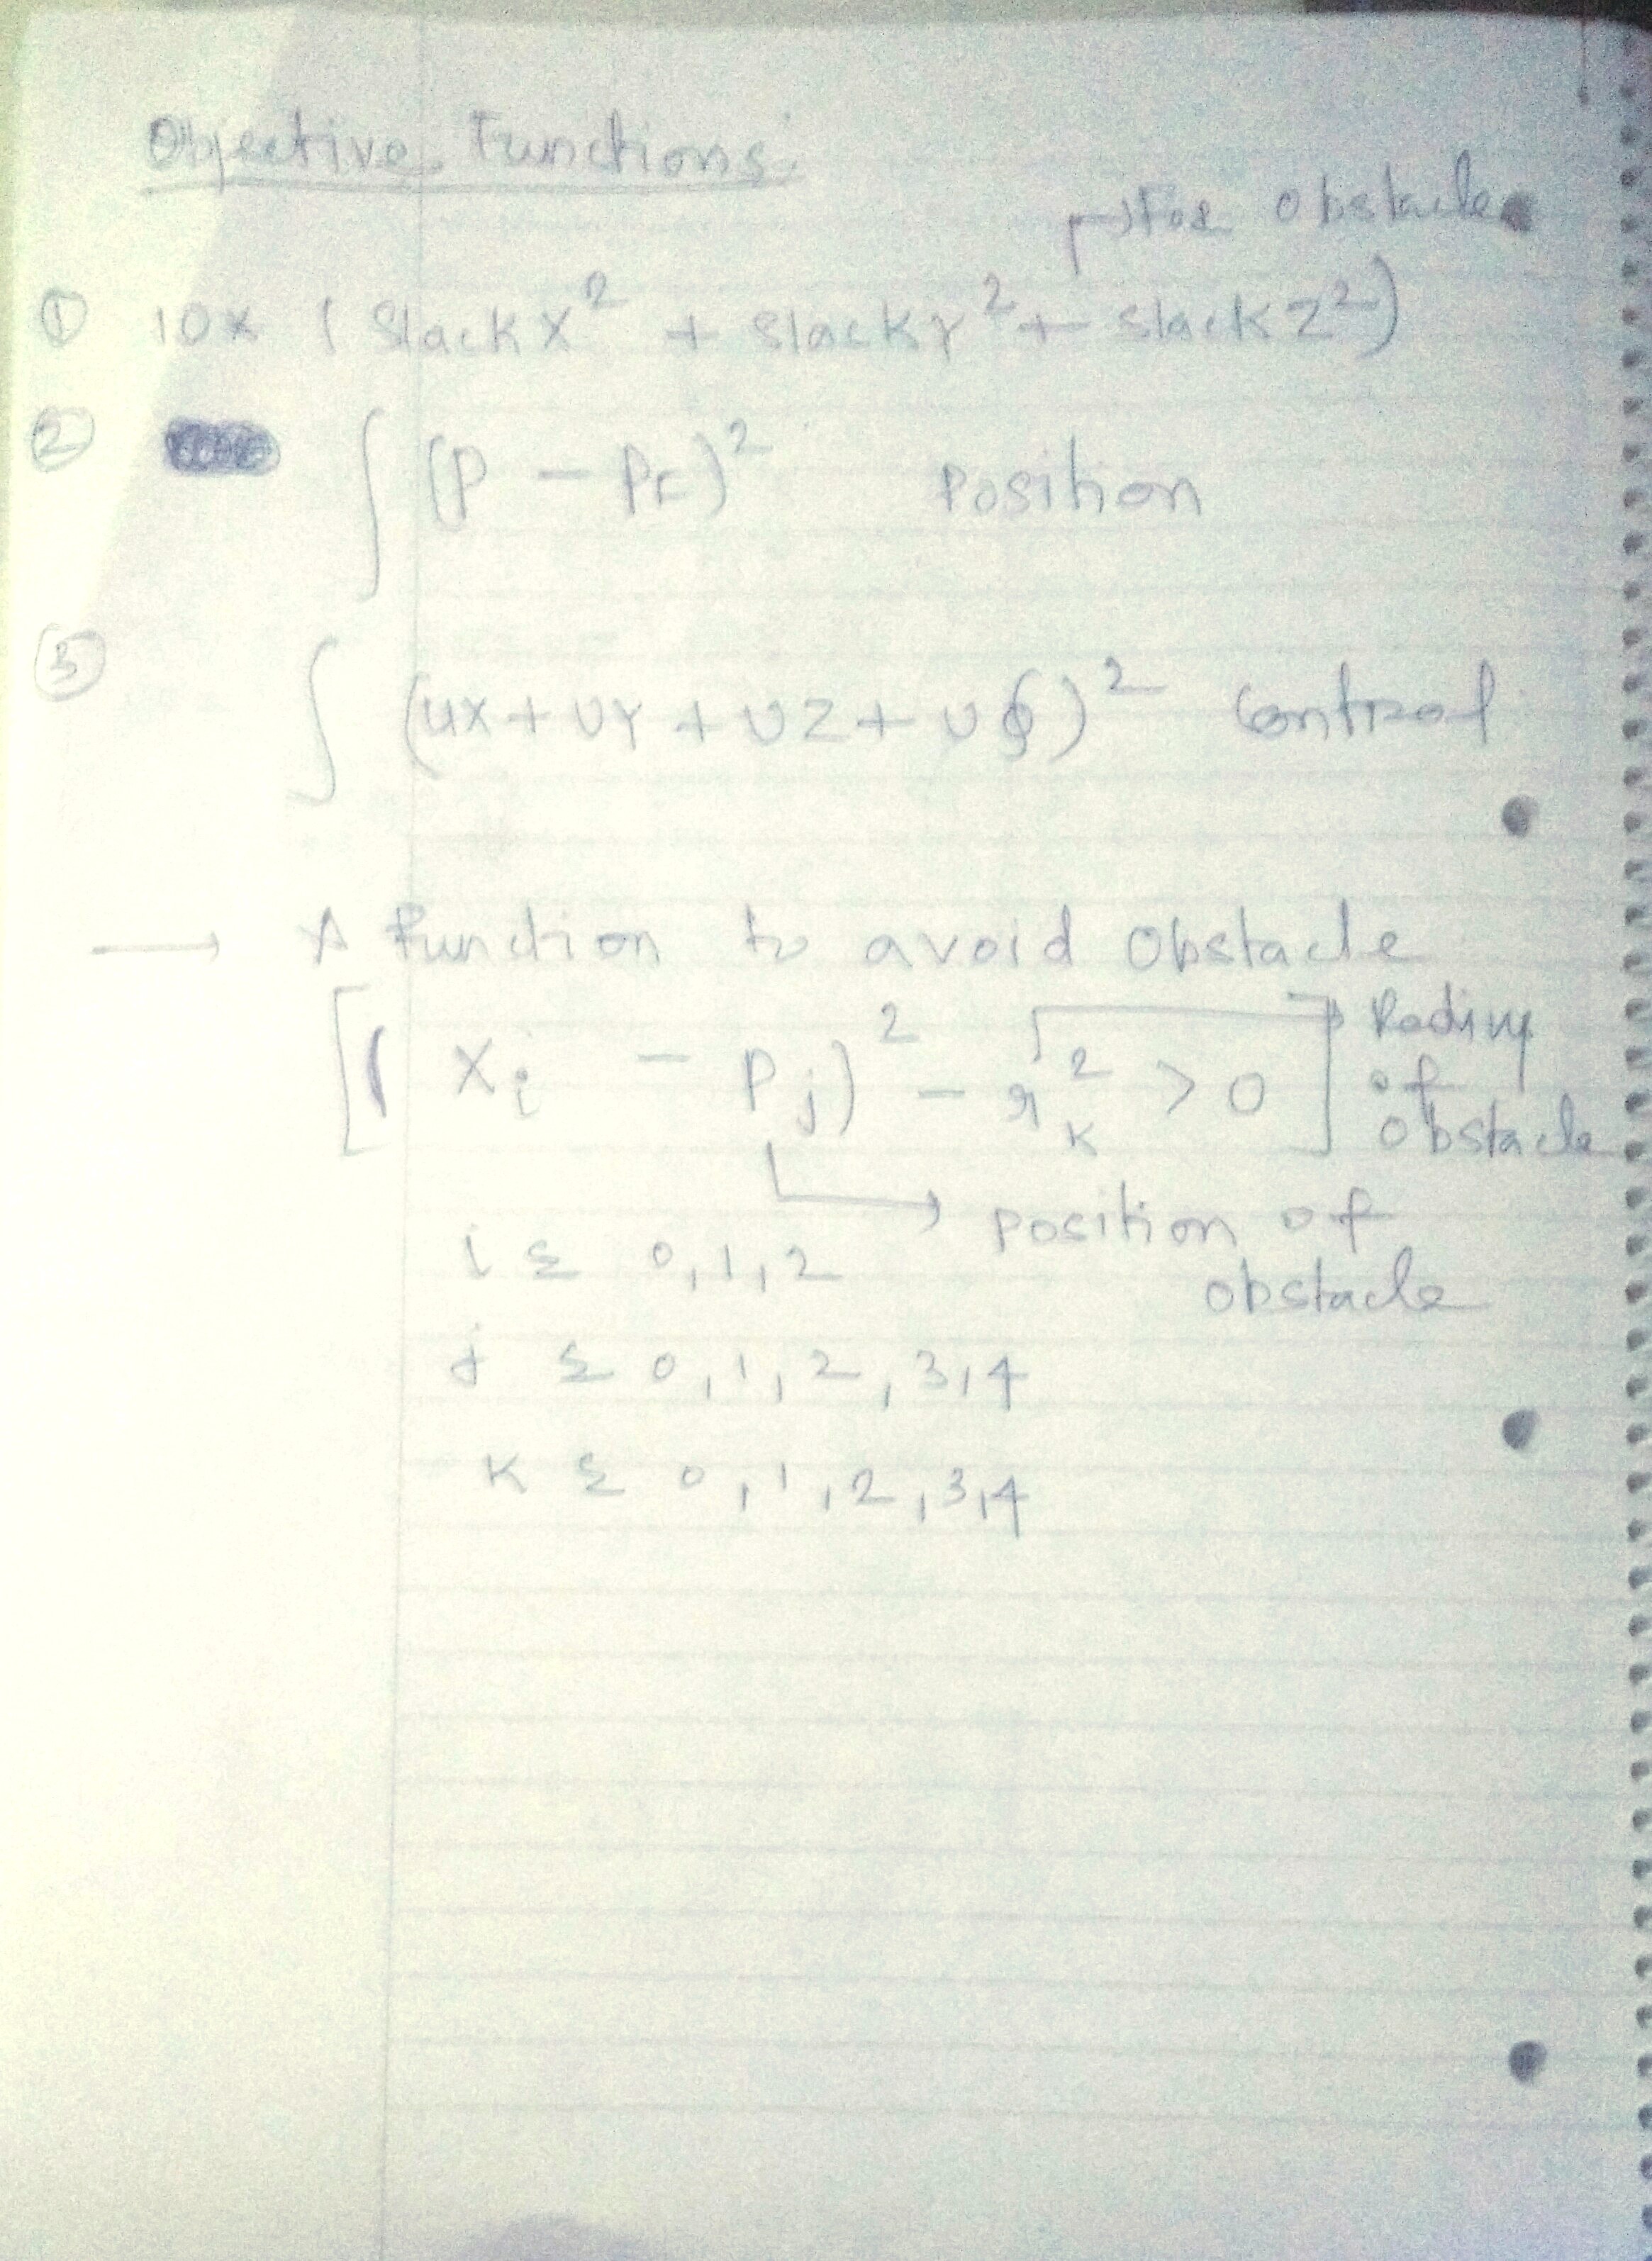 Objective Functions:
→ For obstacles
① 10x ( Slack X² + Slack Y² + Slack Z² )
② ∫ (P - Pr)² Position
③ ∫ (UX + UY + UZ + Uϕ)² Control
→ A function to avoid obstacle
[( Xi - Pj)² - r²k > 0 ] → Radius
of
obstacle
→ position of
obstacle
i ε 0,1,2
j ε 0,1,2,3,4
K ε 0,1,2,3,4